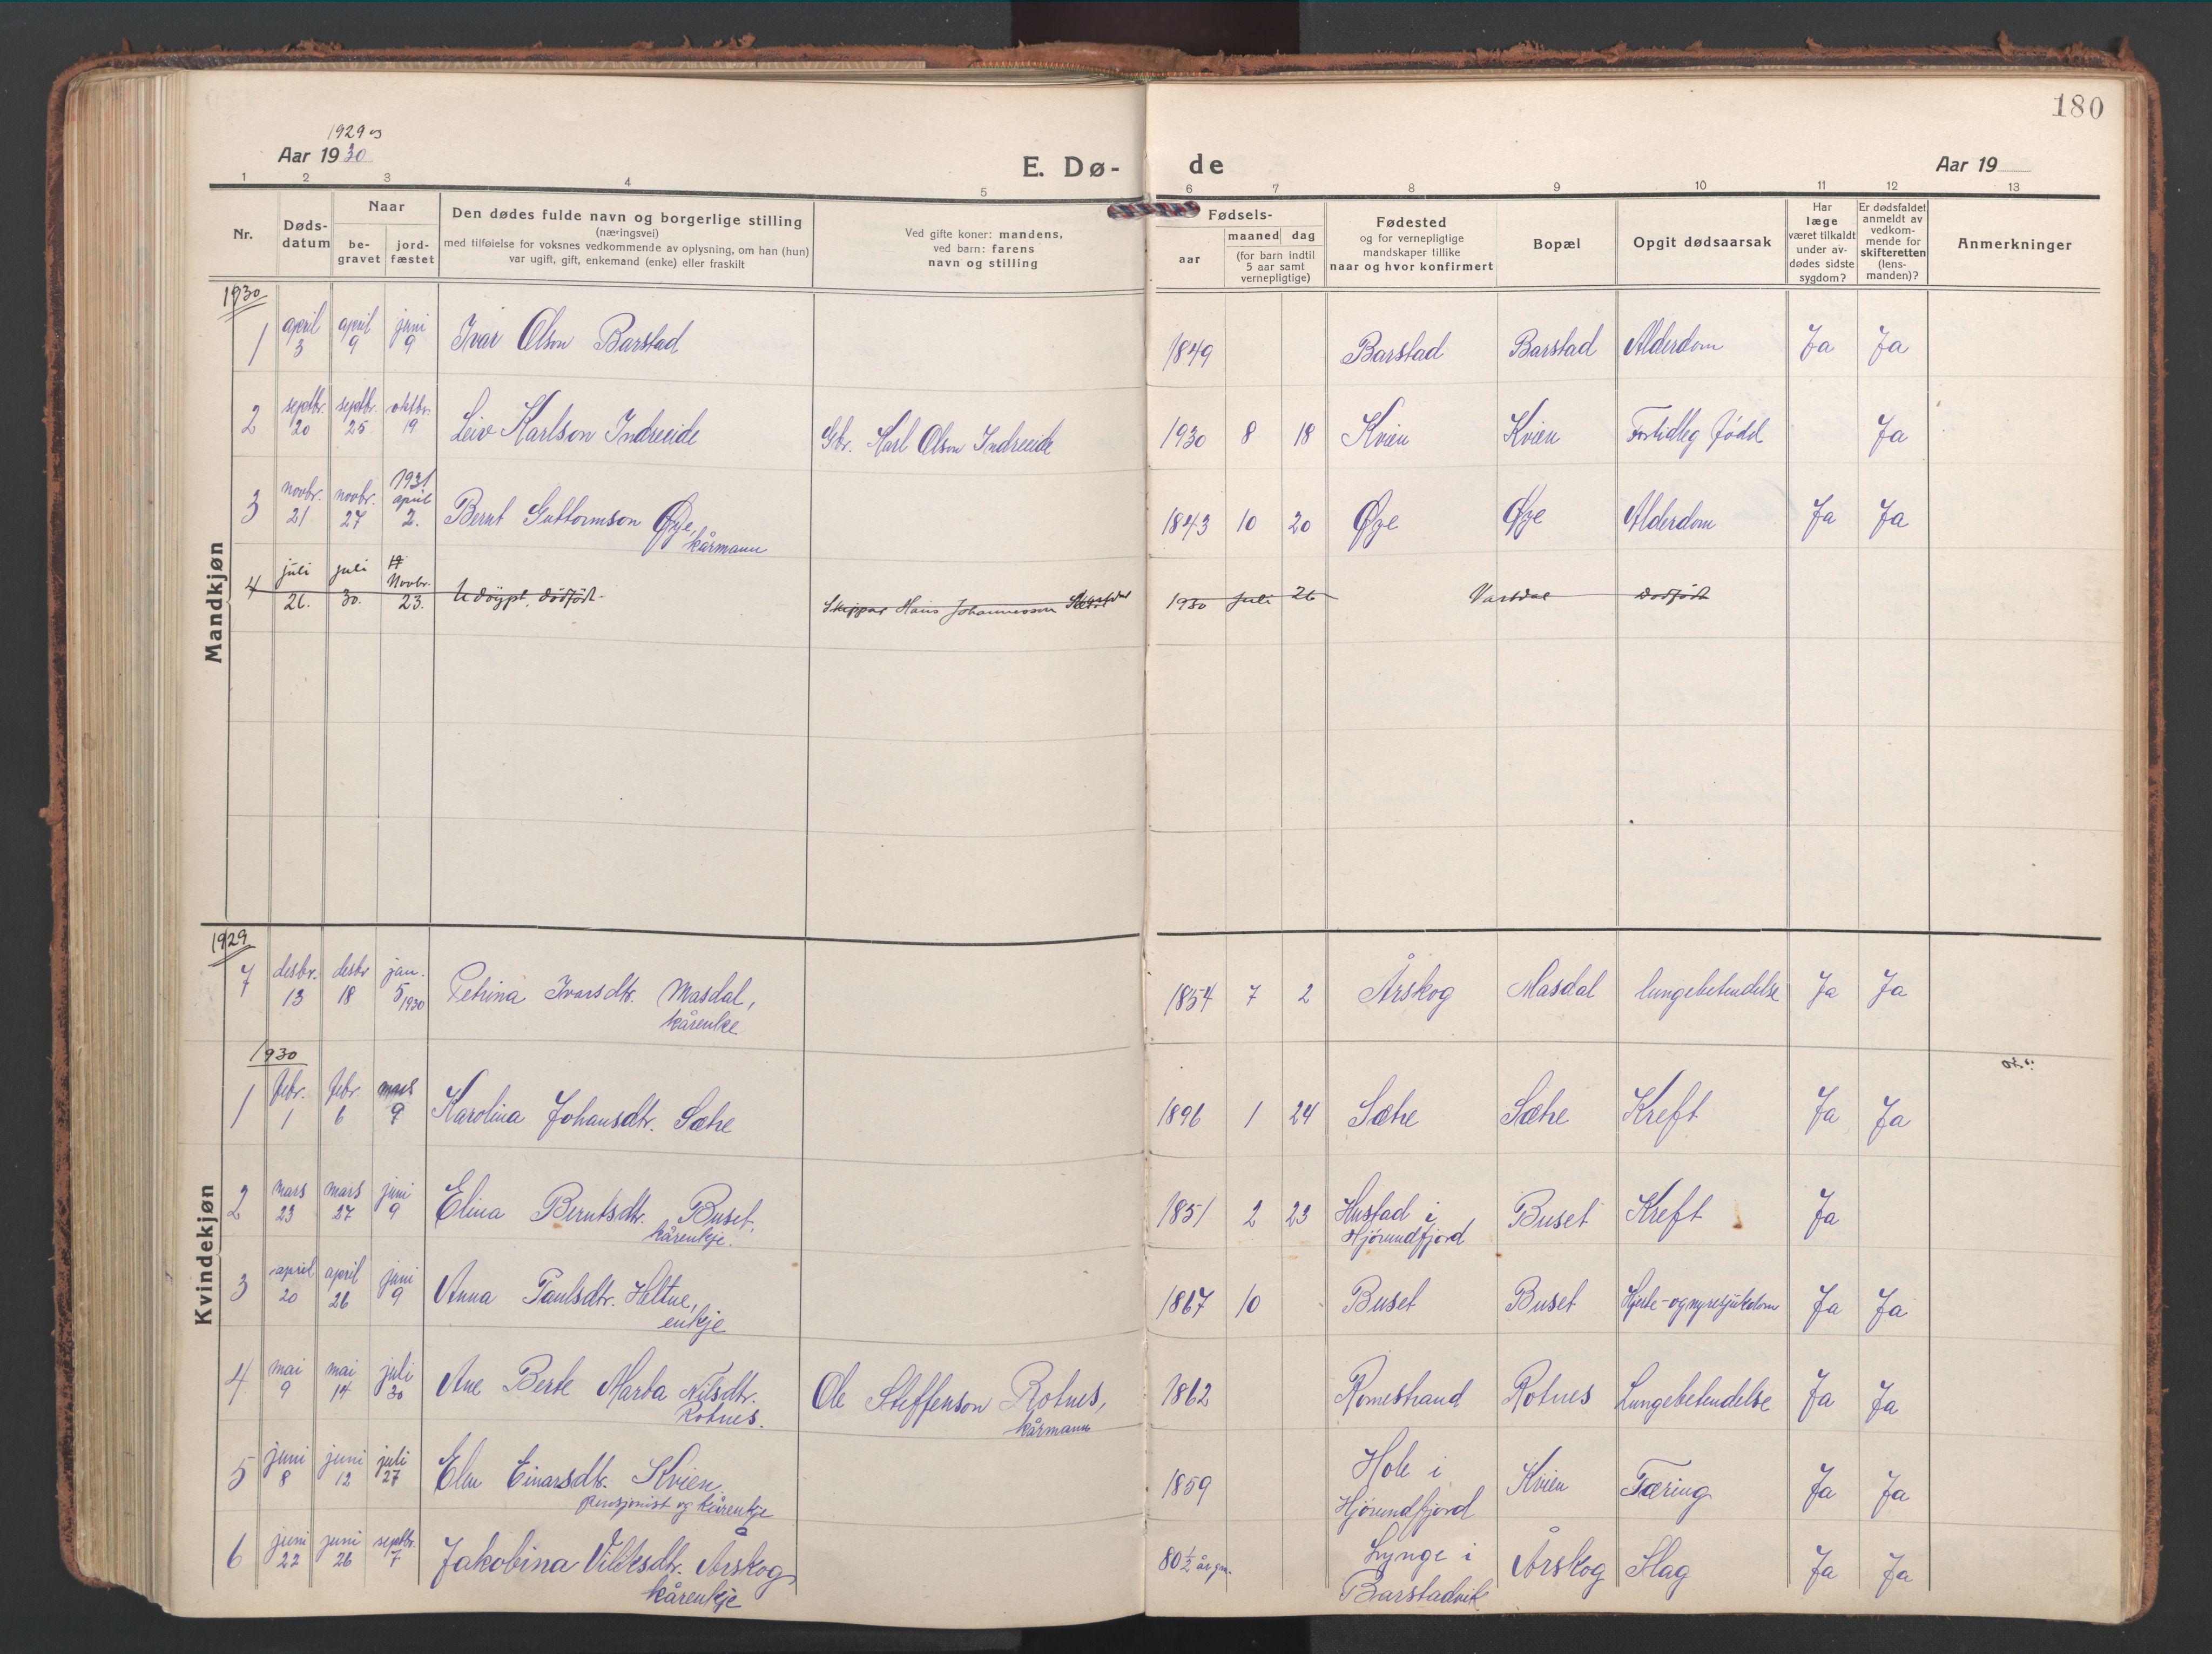 180
1929 og
Aar 1930
E. Dø-de
Aar 19
1 2 3 4 5 6 7 8 9 10 11 12 13
Nr.
Døds-
datum
Naar
be-
gravet
jord-
fæstet
Den dødes fulde navn og borgerlige stilling
(næringsvei)
med tilføielse for voksnes vedkommende av oplysning, om han (hun)
var ugift, gift, enkemand (enke) eller fraskilt
Ved gifte koner: mandens,
ved barn: farens
navn og stilling
Fødsels-
aar
maaned dag
(for barn indtil
5 aar samt
vernepligtige)
Fødested
og for vernepligtige
mandskaper tillike
naar og hvor konfirmert
Bopæl
Opgit dødsaarsak
Har
læge
været tilkaldt
under av-
dødes sidste
sygdom?
Er dødsfaldet
anmeldt av
vedkom-
mende for
skifteretten
(lens-
manden)?
Anmerkninger
Mandkjøn
1930
1 april 3 april 9 juni 9 Ivar Olson Barstad 1849 Barstad Barstad Alderdom Ja Ja
2 septbr. 20 septbr. 25 oktbr. 19 Leiv Karlson Indreeide Gbr. Karl Olson Indreeide 1930 8 18 Kvien Kvien Fortidleg fødd Ja
3 novbr. 21 novbr. 27 1931 april 2. Bernt Guttormson Øye, 1843 10 20 Øye Øye Alderdom Ja Ja
kårmann
4 juli 26. juli 30. Novbr. 23. Udøypt, dødfødt. Skippar Hans Johannesson 1930 juli 26 Vartdal Dødfødt
Kvindekjøn
1929
7 desbr. 13 desbr 18 jan. 5 1930 Petrina Ivarsdtr. Masdal, 1854 7 2 Årskog Masdal lungebetendelse Ja Ja
kårenke
1930
1 febr. 1 febr. 6 mars 9 Karolina Johansdtr. Sætre 1896 1 24 Sætre Sætre Kreft Ja Ja
2 mars 23 mars 27 juni 9 Elina Berntsdtr. Buset, 1851 2 23 Hustad i Buset Kreft Ja
kårenkje. Hjørundfjord
3 april 20 april 26 juni 9 Anna Paulsdtr. Heltne, 1867 10 Buset Buset Hjerte- og nyresjukdom Ja Ja
enkje
4 mai 9 mai 14 juli 30 Ane Berte Marta Nilsdtr. Ole Steffenson Rotnes, 1862 Romestrand Rotnes Lungebetendelse Ja Ja
Rotnes. kårmann
5 juni 8 juni 12 juli 27 Elen Einarsdtr. Kvien 1859 Hole i Kvien Tæring Ja Ja
pensjonist og kårenkje Hjørundfjord
6 juni 22 juni 26 septbr. 7 Jakobina Villiksdtr. Årskog, 80 ½ år gm. Lynge i Årskog Slag Ja Ja
kårenkje Barstadvik